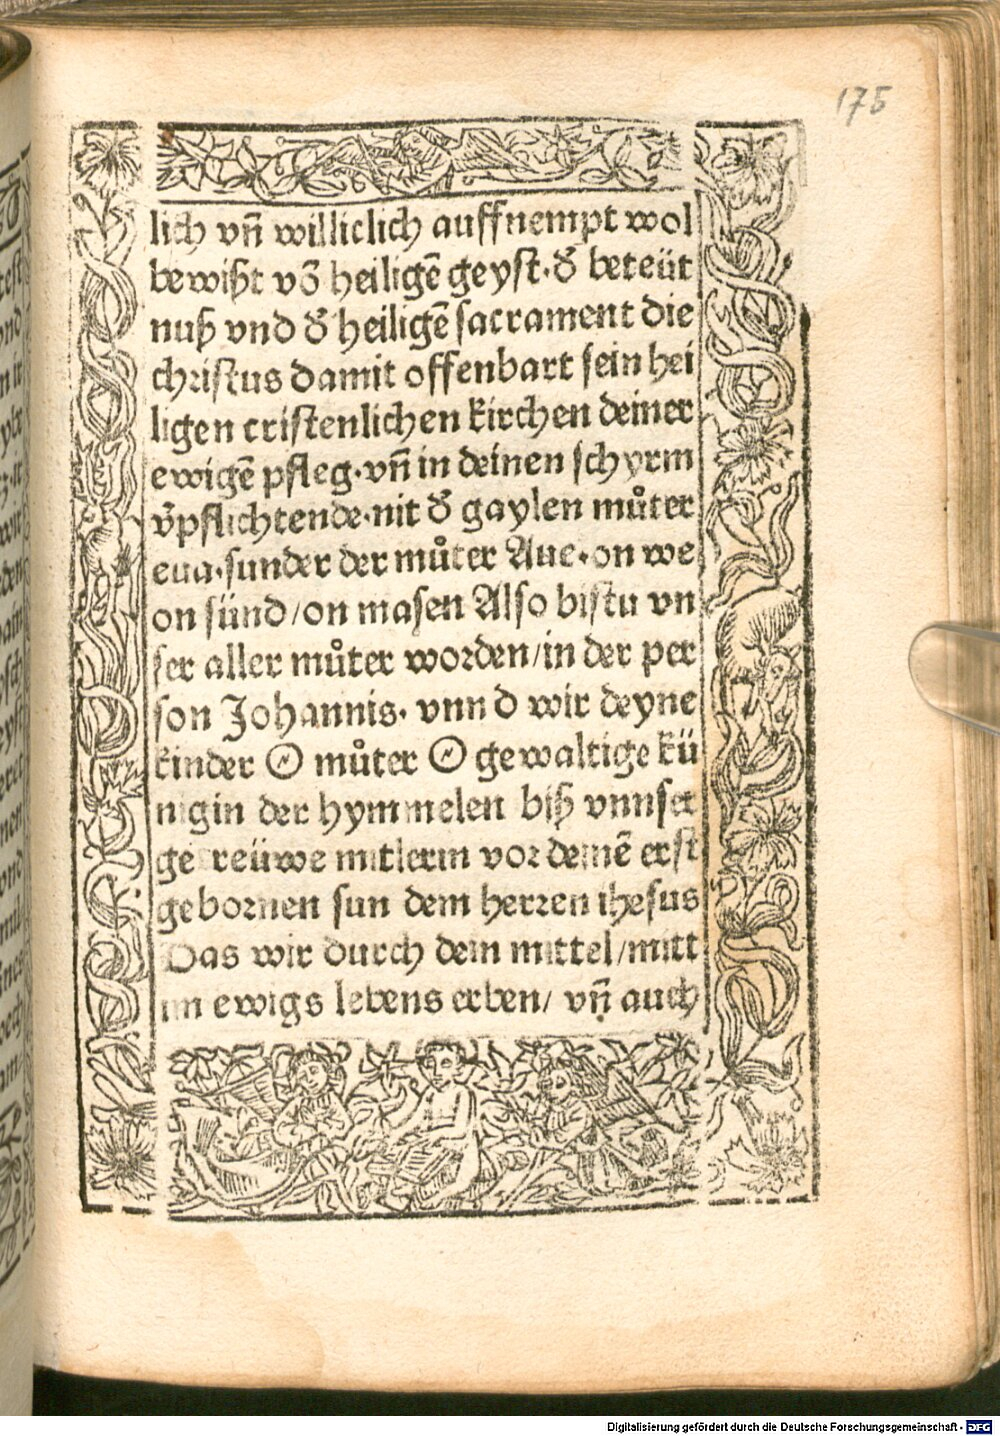 175
lich vñ williclich auffnempt wol
bewißt võ heiligē geyst·d̕ beteüt
nuß vnd d̕ heiligē sacrament die
christus damit offenbart sein hei
ligen cristenlichen kirchen deiner
ewigē pfleg·vñ in deinen schyrm
v̄pflichtende·nit d̕ gaylen můter
eua·sunder der můter Aue·on we
on sünd/on masen Also bistu vn
ser aller můter worden/in der per
son Johannis· vnnd wir deyne
kinder O můter O gewaltige kü
nigin der hymmelen biß vnnser
getreüwe mitlerin vor deinē erst
gebornen sun dem herren ihesus
Das wir durch dein mittel/mitt
im ewigs lebens erben/ vñ auch
Digitalisierung gefördert durch die Deutsche Forschungsgemeinschaft - DFG